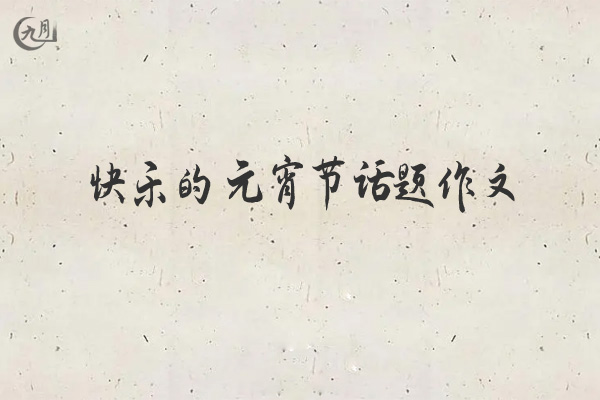 九月
快乐的元宵节话题作文